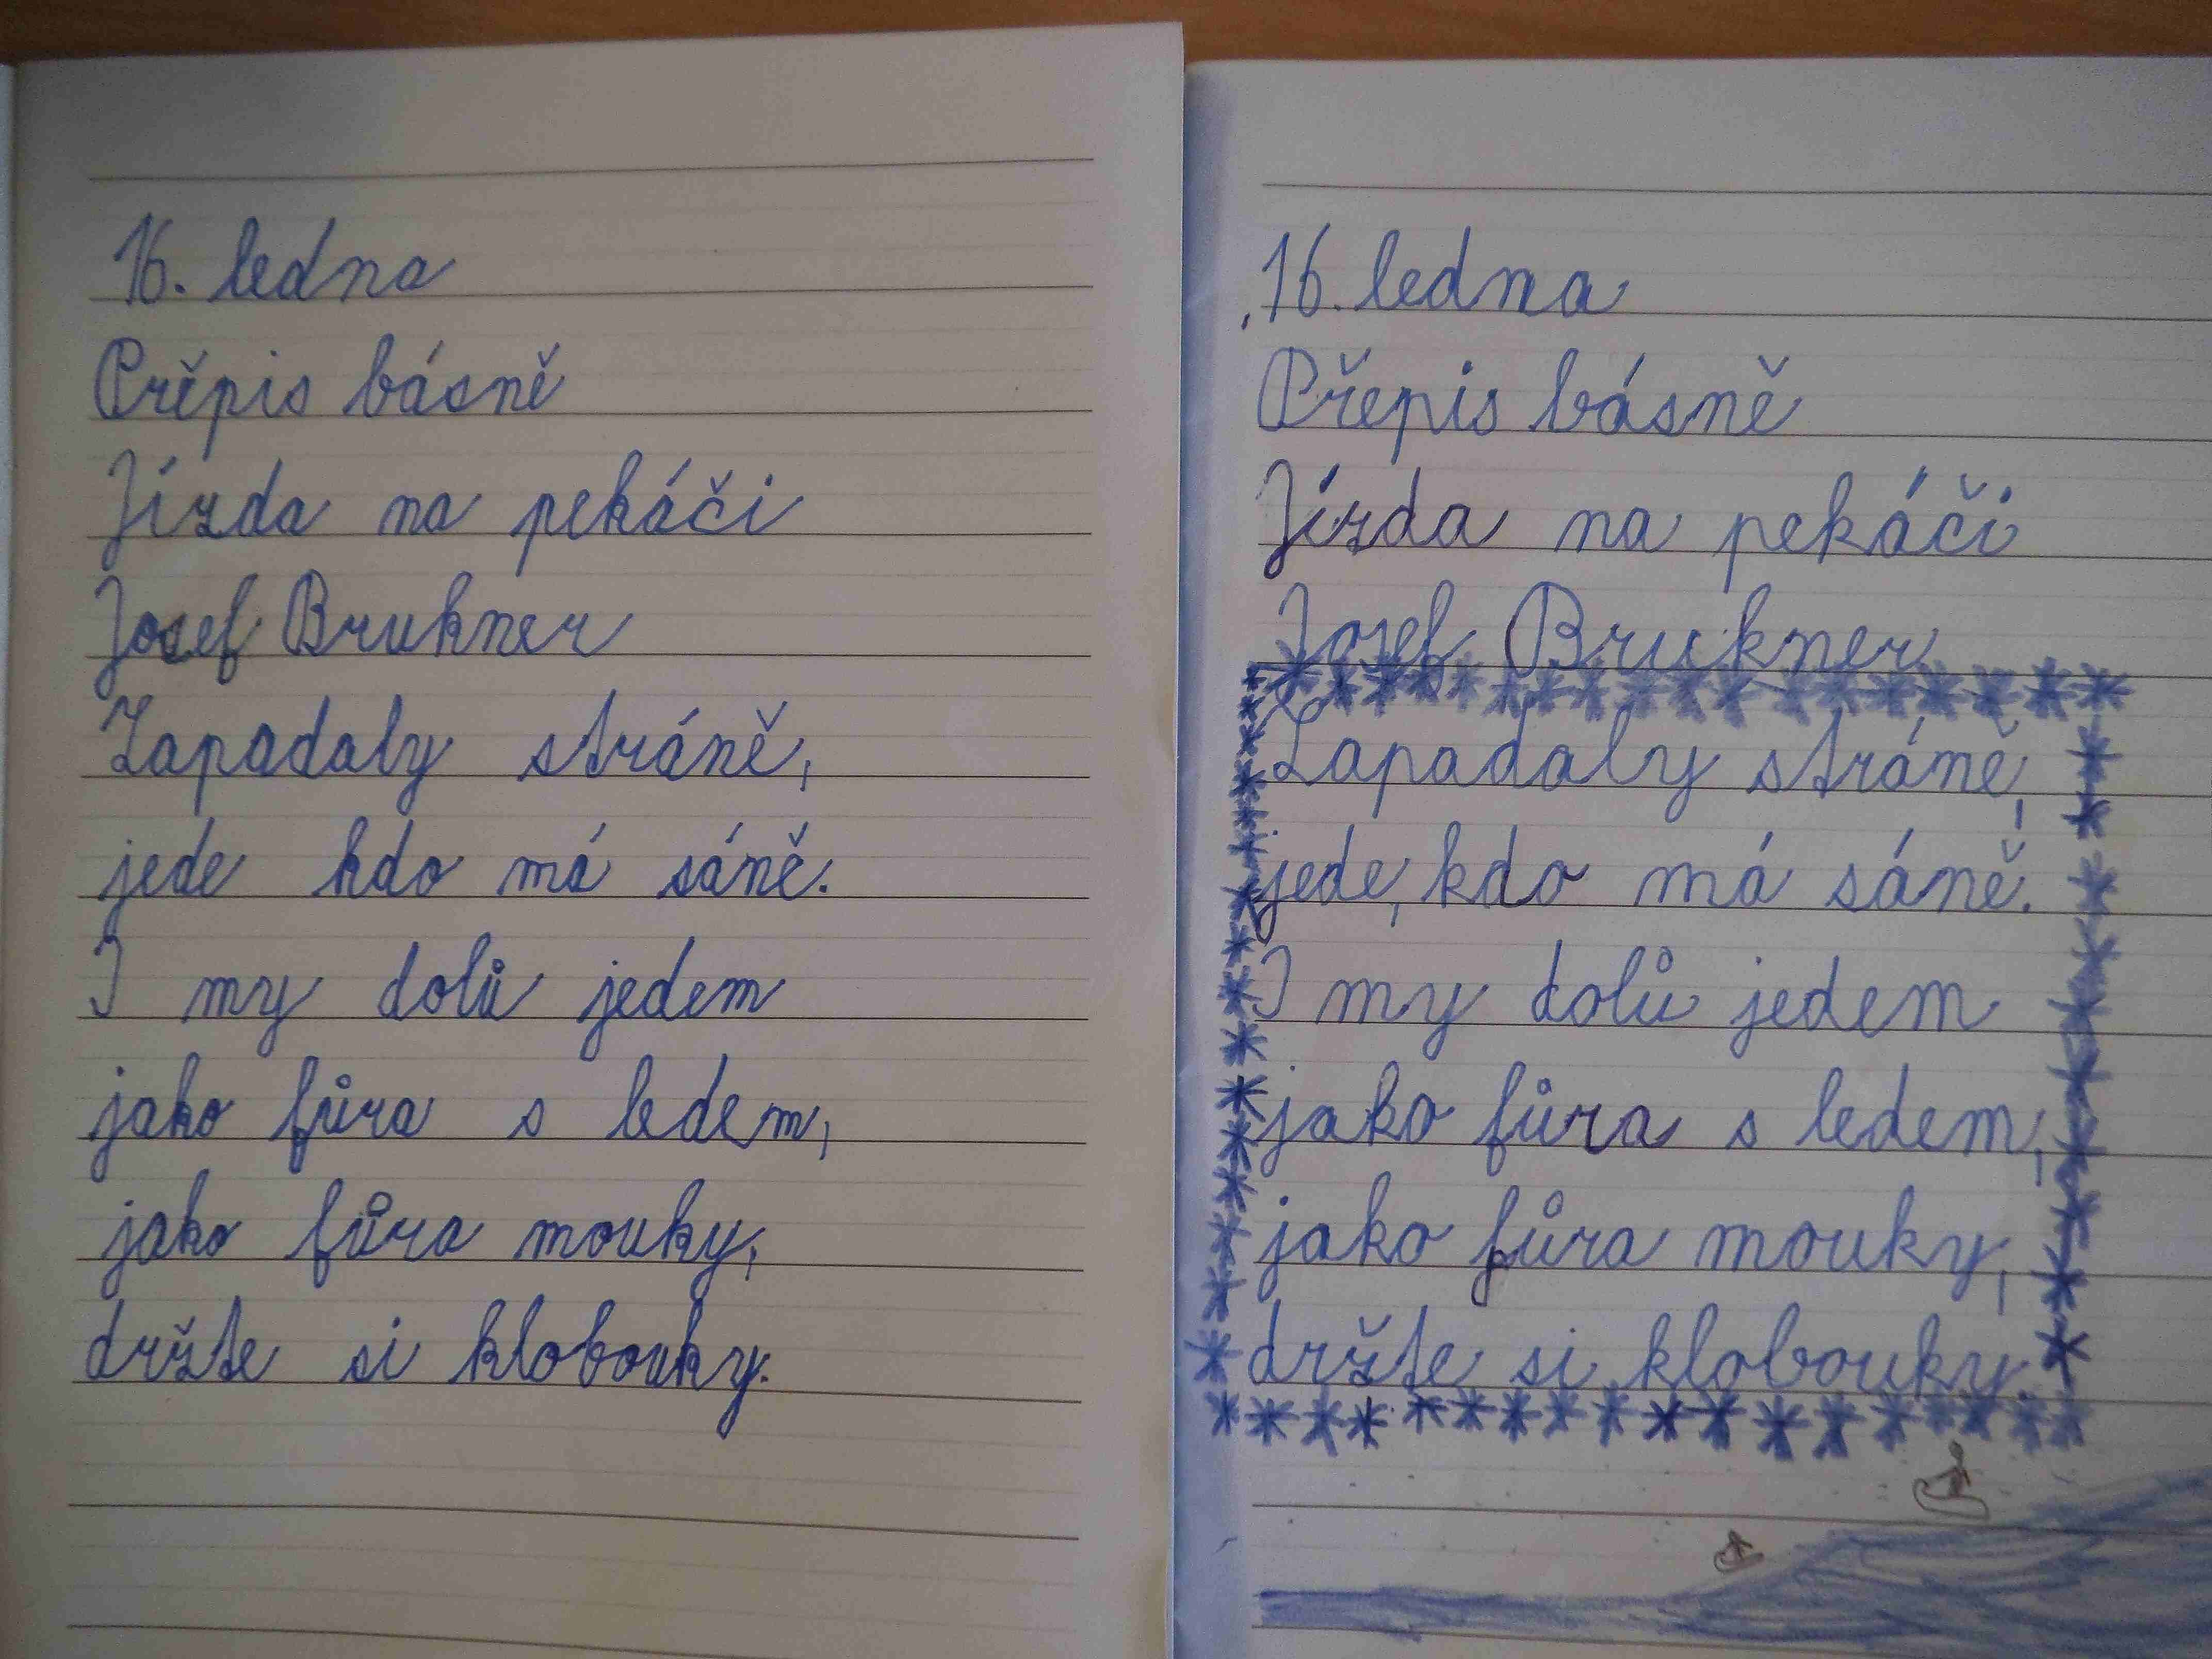 16. ledna
Přepis básně
Jízda na pekáči
Josef Brukner
Zapadaly stráně,
jede kdo má sáně.
I my dolů jedem
jako fůra s ledem,
jako fůra mouky,
držte si klobouky.
16. ledna
Přepis básně
Jízda na pekáči
Josef Brukner
Zapadaly stráně,
jede, kdo má sáně.
I my dolů jedem
jako fůra s ledem,
jako fůra mouky,
držte si klobouky.